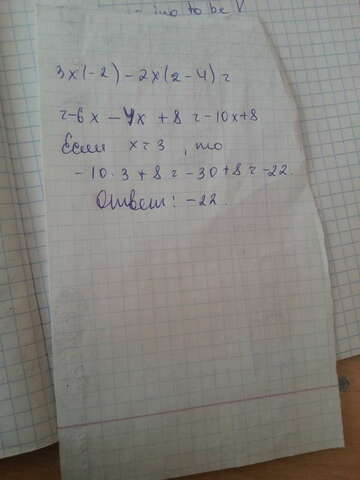 - ing to be V
3x(-2) - 2x(2-4) =
= -6x - 4x + 8 = -10x+8
Если x=3, то
-10·3+8=-30+8=-22.
Ответ: -22.